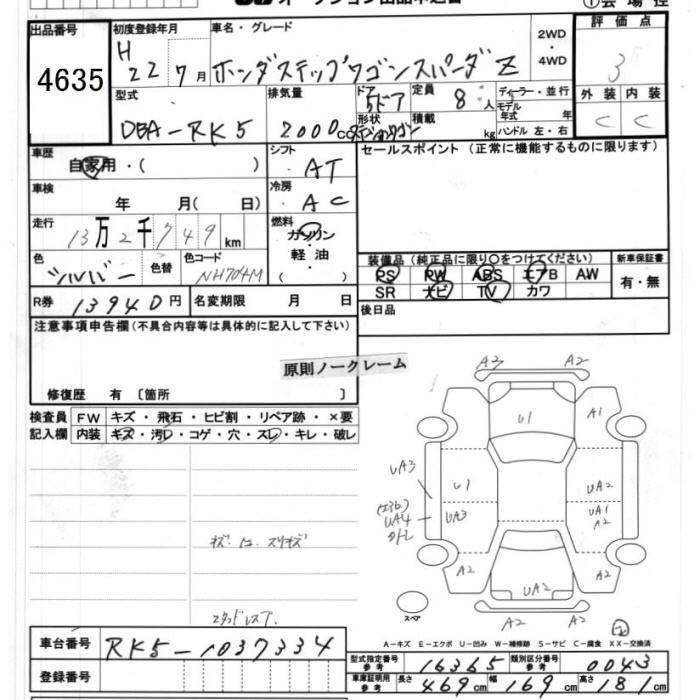 出品番号
4635
初度登録年月
H
22 7月
車名・グレード
ホンダステップワゴンスパーダ Z
2WD
・
4WD
評価点
3
外装 内装
C C
型式
DBA-RK5
排気量
2000cc
ドア
5ドア
形状
定員
8人
積載
kg
ディーラー・並行
モデル
年式 年
ハンドル 左・右
車歴
自家用・( )
シフト
AT
セールスポイント (正常に機能するものに限ります)
車検
年 月( 日)
冷房
AC
走行
13万2千749km
燃料
ガソリン
・
軽油
( )
色
シルバー
色替
色コード
NH704M
装備品 (純正品に限り○をつけてください)
新車保証書
PS PW ABS エアB AW
SR ナビ TV カワ
有・無
R券 13940円
名変期限 月 日
後日品
注意事項申告欄 (不具合内容等は具体的に記入して下さい)
原則ノークレーム
修復歴 有 〔箇所 〕
検査員 FW キズ・飛石・ヒビ割・リペア跡・×要
記入欄 内装 キズ・汚レ・コゲ・穴・スレ・キレ・破レ
A2 A2
U1 A1
UA3
U1 UA2
UA4 UA3 UA1
A2
A2 A2
UA2
スペア
A2 A2
A-キズ E-エクボ U-凹み W-補修跡 S-サビ C-腐食 XX-交換済
車台番号 RK5-1037334
登録番号
型式指定番号
参考
16365
類別区分番号
参考
0043
車庫証明用
参考
長さ 469cm 幅 169cm 高さ 181cm